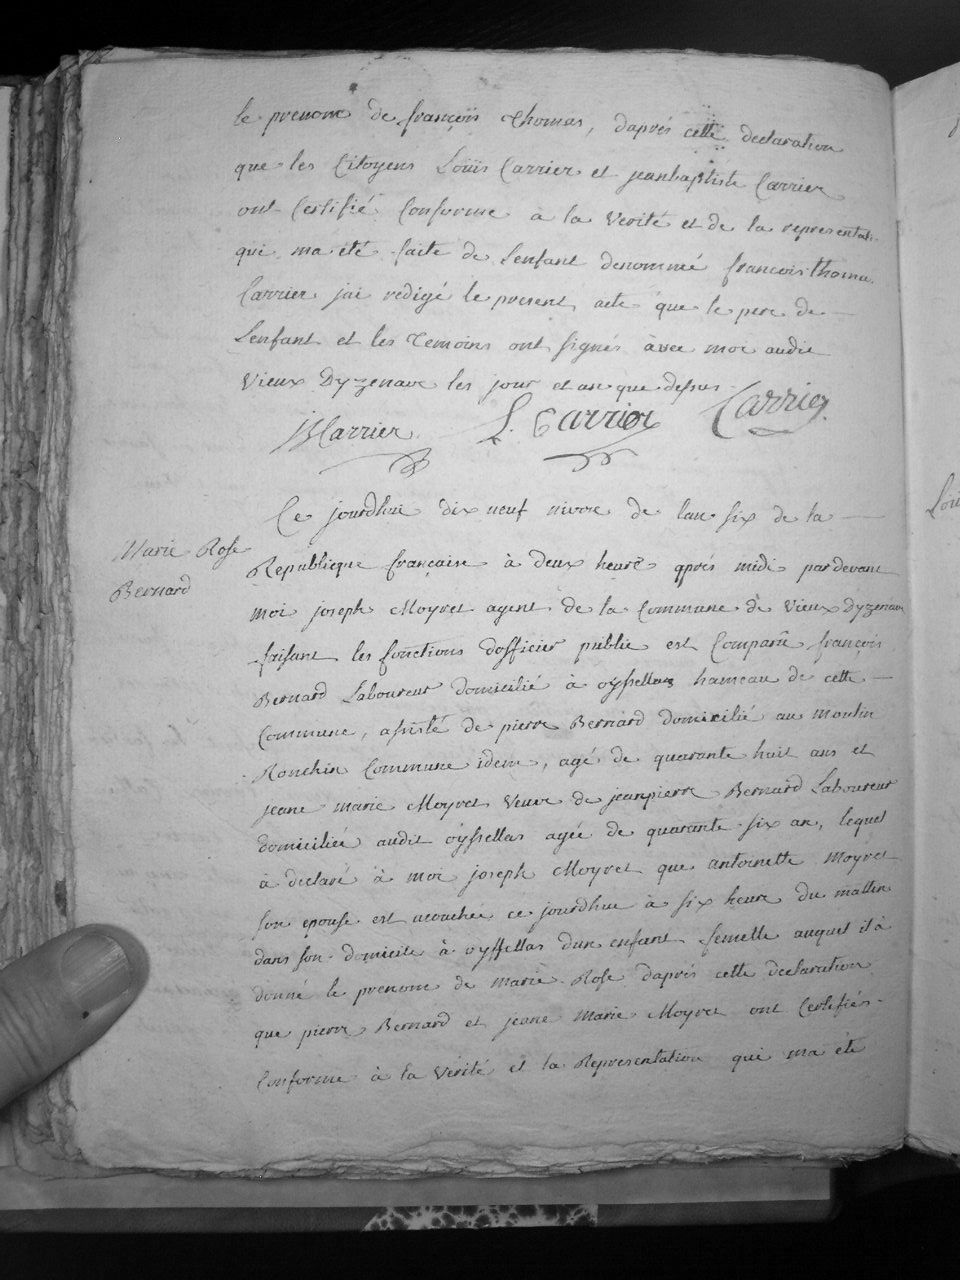 le prenom de françois Thomas, daprés cette declaration
que les Citoyens Loüis Carrier et jeanbaptiste Carrier
ont Certifié Conforme a la verité et de la representati.
qui ma été faite de Lenfant denommé francois thomas
Carrier jai redigé le present acte que le pere de
Lenfant et les Temoins ont signés avec moi audit
Vieux Dyzenave les jour et an que dessus
JBCarrier L. Carrier Carrier
Ce jourdhui dix neuf nivose de lan six de la
Marie Rose
Bernard
Republique française à deux heure aprés midi pardevant
moi joseph Moyret agent de la Commune de vieux Dyzenave
faisant les fonctions dofficier public est Comparu françois
Bernard Laboureur domicilié à oyssellas hameau de cette
Commune, assisté de pierre Bernard domicilié au moulin
Ronchin Commune idem, agé de quarante huit ans et
jeane marie Moyret Veuve de jeanpierre Bernard Laboureur
domiciliée audit oyssellas agée de quarante six an, lequel
à declaré à moi joseph Moyret que antoinette moyret
son epouse est acouchée ce jourdhui à six heure du mattin
dans son domicile à oyssellas dun enfant femelle auquel il à
donné le prenom de marie Rose daprés cette declaration
que pierre Bernard et jeane Marie Moyret ont Certifiés
Conforme à la Vérité et la Representation qui ma été